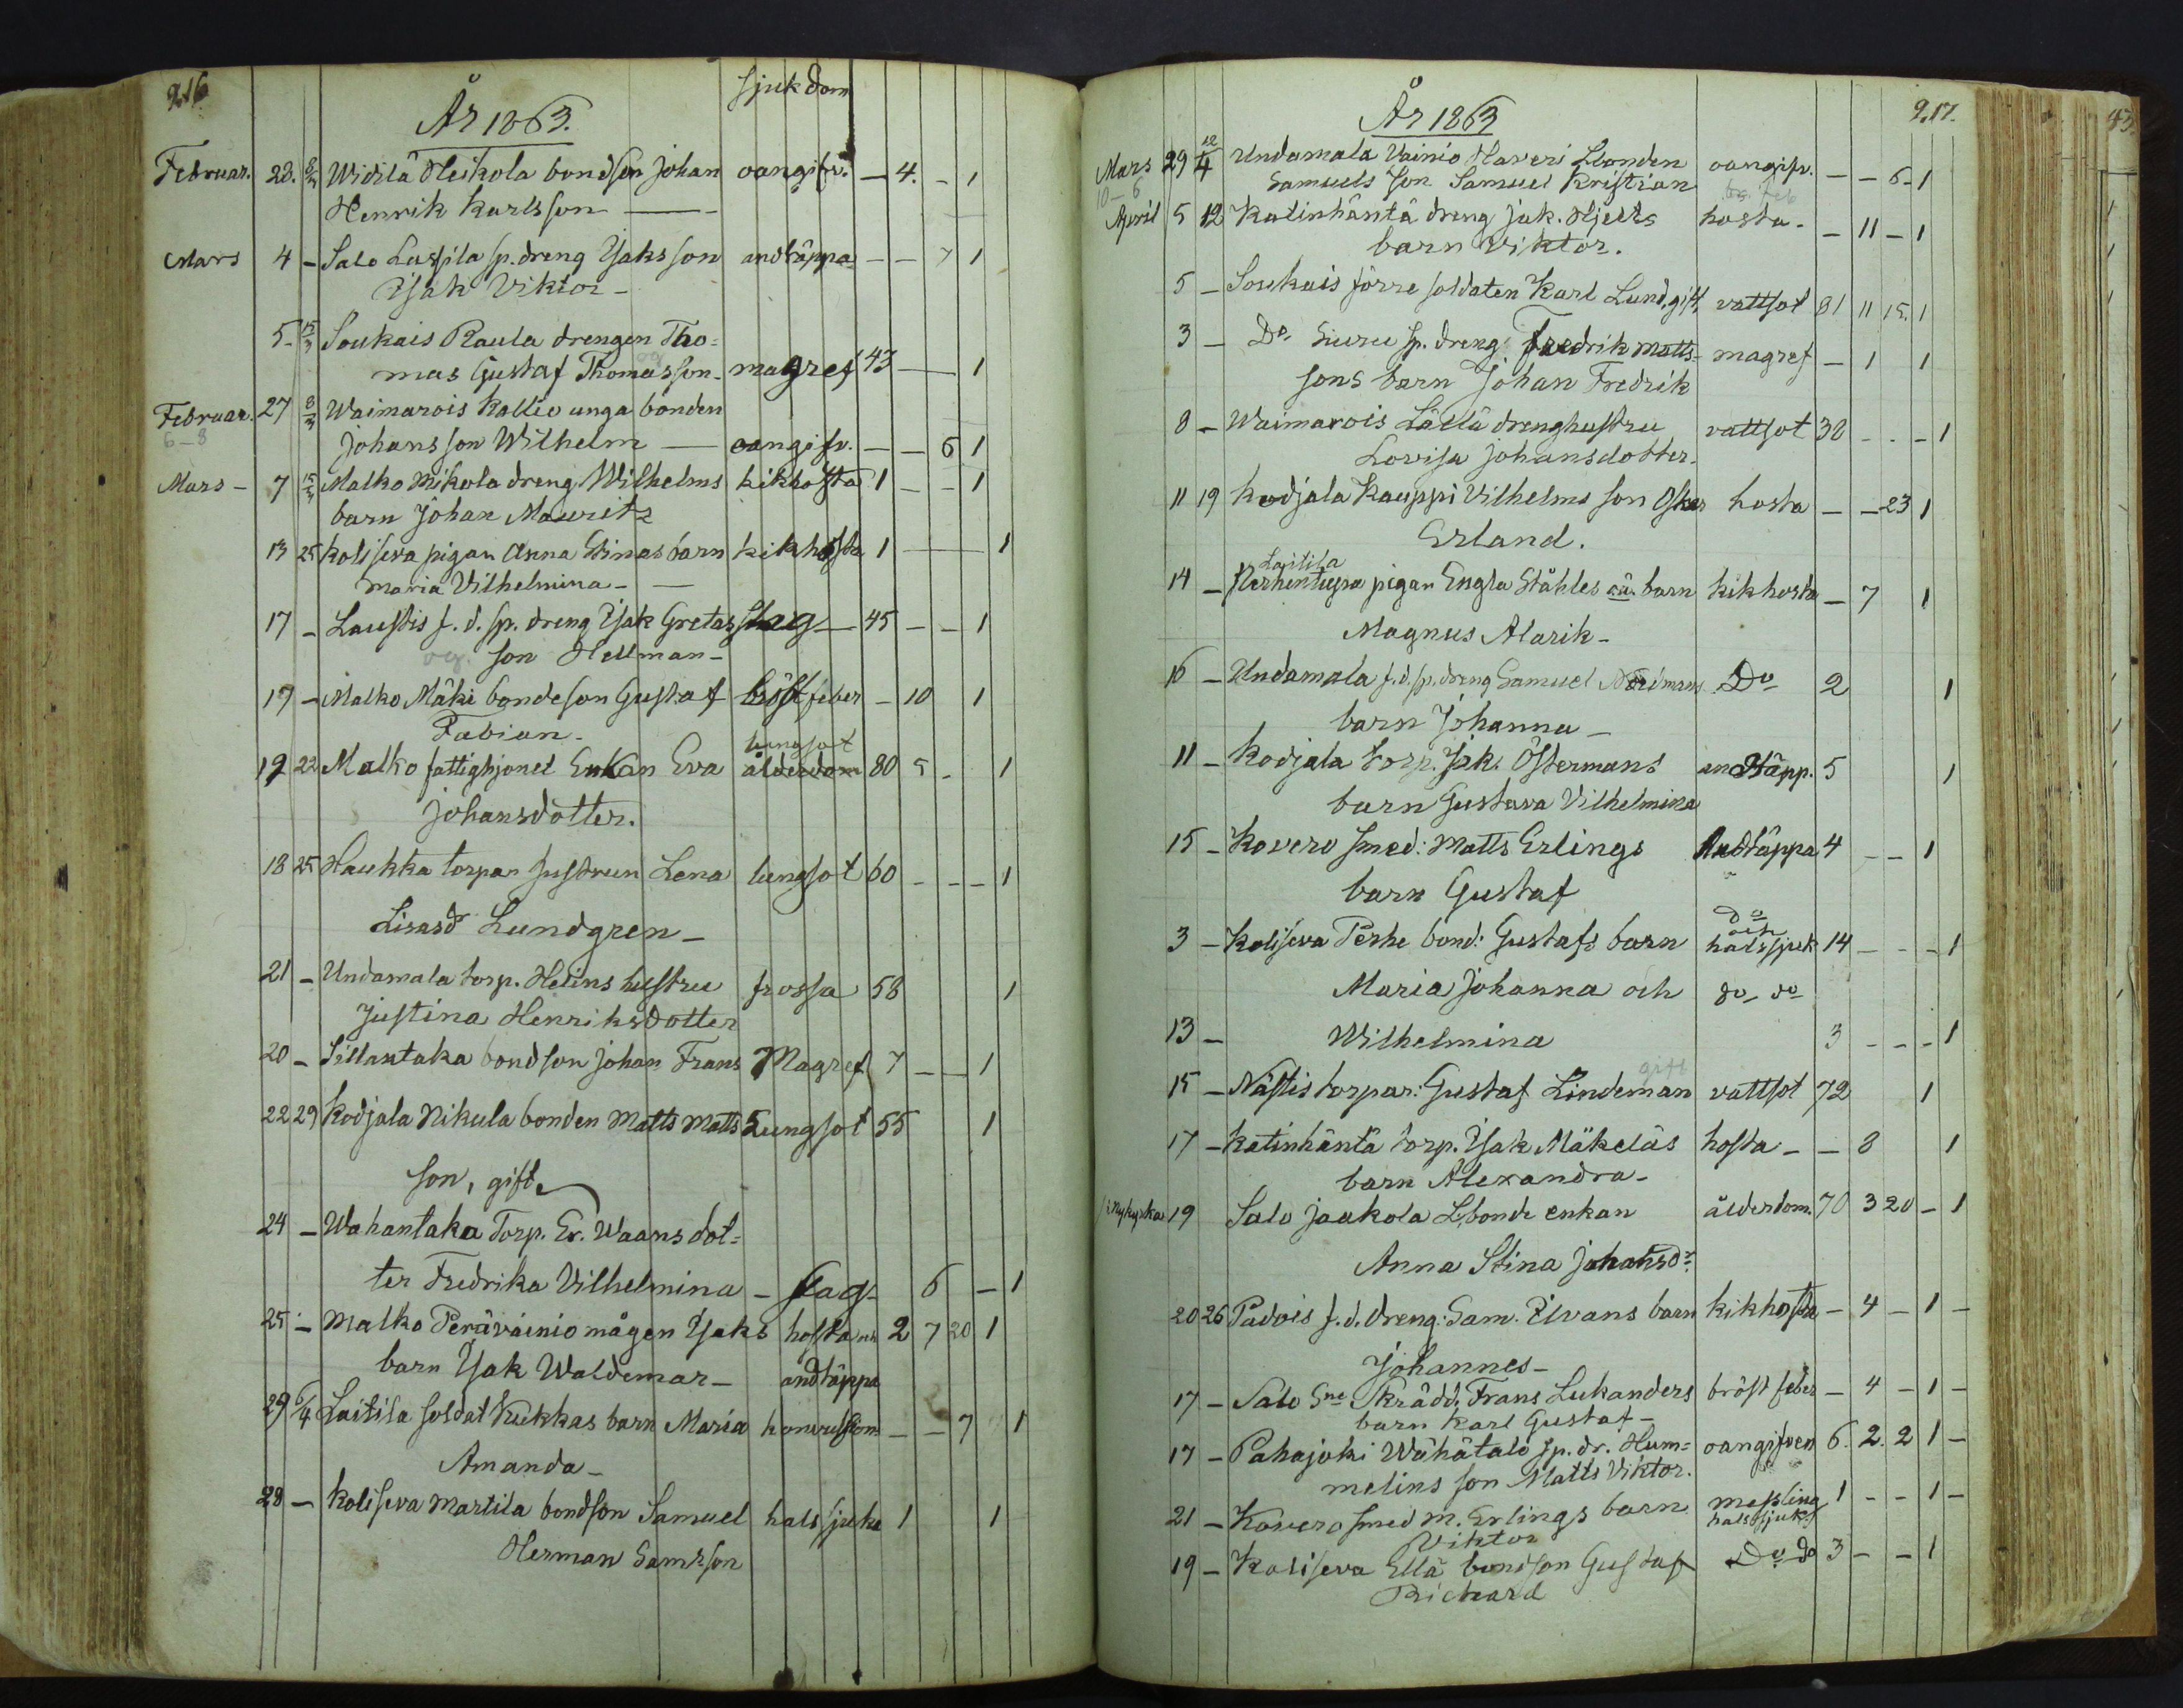 216
År 1863.
sjukdom
Februar. 28. 8/3 Widilä Heikola bondson Johan oangifv. — 4. — 1
Henrik Karlsson —
Mars 4 — Salo Lassila sp. dreng Isaks son andtäppa — — 7 1
Isak Viktor —
5. 15/3 Soukais Raula drengen Tho=
mas Gustaf Thomasson — magref 43 — 1
og
Februar. 27 8/3 Waimarois Kallio unga bonden
6-8
Johans son Wilhelm — oangifv. — — 6 1
Mars — 7 15/3 Malko Mikola dreng Wilhelms kikhosta 1 — — 1
barn Johan Mauritz
13 25 Koliseva pigan Anna Stinas barn kikhosta 1 — 1
Maria Vilhelmina —
17 — Laustis f. d. sp. dreng Isak Gretas slag — 45 — — 1
og. son Hellman —
17 — Malko Mäki bondeson Gustaf bröstfeber — 10 1
Fabian —
lungsot
19 22 Malko fattighjonet Enkan Eva ålderdom 80 5 — 1
Johansdotter.
18 25 Haukka torpar hustrun Lena lungsot 60 — — — 1
Lisasdr Lundgren —
21 — Undamala torp. Heins hustru frossa 58 1
Justina Henriksdotter
20 — Sillantaka bondson Johan Frans Magref 7 — — 1
22 29 Kodjala Nikula bonden Matts Matts Lungsot 55 1
son, gift.
24 — Wahantaka Torp. Er. Waans dot=
ter Fredrika Vilhelmina — slag — 6 — 1
25 — Malko Perävainio mågen Isaks hosta och 2 7 20 1
barn Isak Waldemar — andtäppa
29 6/4 Laitila soldat Kukkas barn Maria konvulsion — — 7 1
Amanda —
28 — Koliseva Martila bondson Samuel halssjuka 1 1
Herman Samsson
217.
År 1863
Mars 29 12/4 Undamala Vainio Haveri Lbonden oangifv. — — 6 — 1
10-6 Samuels son Samuel Kristian
April 5 12 Katinhäntä dreng Jak. Hjelts hosta — — 11 — 1
barn Viktor.
5 — Soukais förre soldaten Karl Lund, gift, vattsot 81 11 15. 1
3 — Do Siuru sp. dreng. Fredrik Matts- magref — 1 1
sons barn Johan Fredrik
8 — Waimarois Lällä drenghustru vattsot 38 — — — 1
Lovisa Johansdotter.
11 19 Kodjala Kauppi Vilhelms son Oskar hosta — — 23 1
Erland.
Laitila
14 — pigan Engla Ståhles oä. barn kikhosta — 7 1
Magnus Alarik —
16 — Undamala f. d. sp. dreng Samuel Do 2 1
barn Johanna —
11 — Kodjala torp. Isak. Östermans andtäpp. 5 1
barn Gustava Vilhelmina
15 — Kovero smed: Matts Erlings Andtäppa 4 — — 1
barn Gustaf
do
och
3 — Koliseva Perhe bond: Gustafs barn halssjuk 14 — — — 1
Maria Johanna och do do
13 — Wilhelmina 3 — — — 1
gift
15 — Nästis torpar: Gustaf Lindeman vattsot 72 1
17 — Katinhäntä torp. Isak Mäkeläs hosta — — 8 1
barn Alexandra —
i Nykyrka 19 Salo Jaakola Lbonde enkan ålderdom. 70 3 20 — 1
Anna Stina Johansdr
20 26 Padois f. d. dreng: Sam. Elvans barn kikhosta — 4 — 1 —
Johannes —
17 — Salo Sne Skrädd. Frans Lukanders bröstfeber — 4 — 1 —
barn Karl Gustaf —
17 — Pahajoki Wähätalo sp. dr. Hum= oangifven 6. 2. 2 1 —
melins son Matts Viktor.
21 — Kovero smed M. Erlings barn messling 1 — — 1 —
Viktor halssjuk.
19 — Koliseva Ellä bondson Gustaf Do do 3 — — 1
Richard
43.